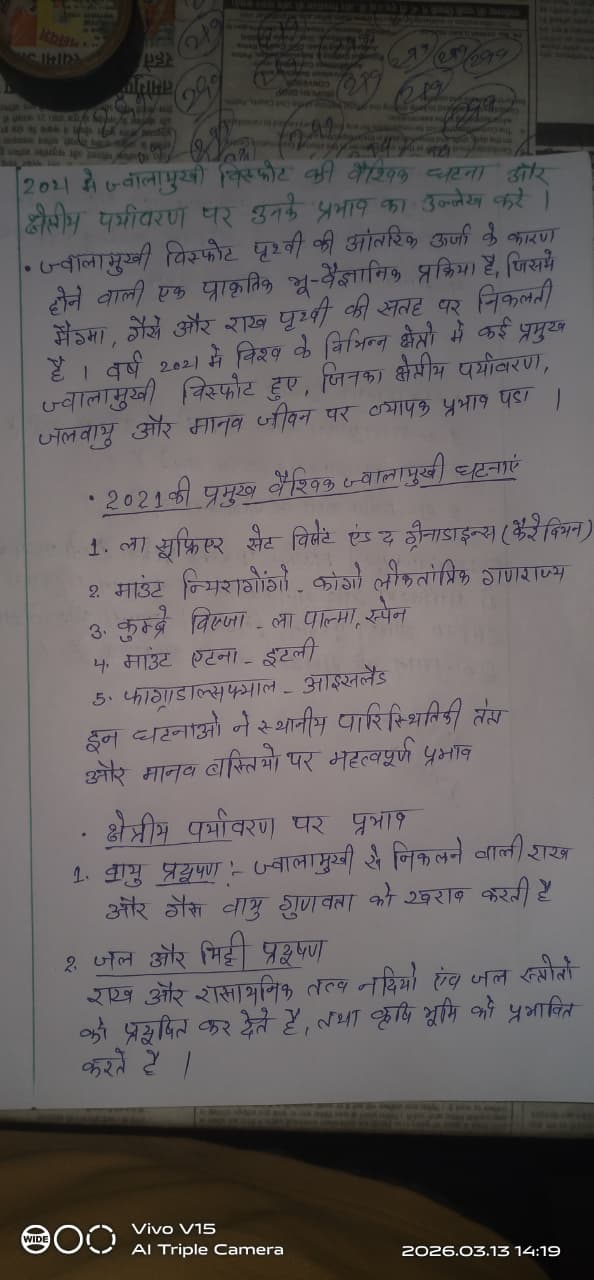 2021 में ज्वालामुखी विस्फोट की वैश्विक घटना और
क्षेत्रीय पर्यावरण पर उनके प्रभाव का उल्लेख करे ।
• ज्वालामुखी विस्फोट पृथ्वी की आंतरिक ऊर्जा के कारण
होने वाली एक प्राकृतिक भू-वैज्ञानिक प्रक्रिया है, जिसमें
मैग्मा, गैसे और राख पृथ्वी की सतह पर निकलती
है । वर्ष 2021 में विश्व के विभिन्न क्षेत्रो में कई प्रमुख
ज्वालामुखी विस्फोट हुए, जिनका क्षेत्रीय पर्यावरण,
जलवायु और मानव जीवन पर व्यापक प्रभाव पडा ।
• 2021 की प्रमुख वैश्विक ज्वालामुखी घटनाएं
1. ला सूफ्रिएर सेंट विंसेंट एंड द ग्रेनाडाइन्स (कैरेबियन)
2. माउंट न्यिरागोंगो - कांगो लोकतांत्रिक गणराज्य
3. कुम्ब्रे विएजा - ला पाल्मा, स्पेन
4. माउंट एटना - इटली
5. फाग्राडाल्सफ्याल - आइसलैंड
इन घटनाओ ने स्थानीय पारिस्थितिकी तंत्र
और मानव बस्तियो पर महत्वपूर्ण प्रभाव
• क्षेत्रीय पर्यावरण पर प्रभाव
1. वायु प्रदूषण :- ज्वालामुखी से निकलने वाली राख
और गैस वायु गुणवता को खराब करती है
2. जल और मिट्टी प्रदूषण
राख और रासायनिक तत्व नदियो एंव जल स्त्रोतो
को प्रदूषित कर देते है, तथा कृषि भूमि को प्रभावित
करते है ।
WIDE
Vivo V15
AI Triple Camera
2026.03.13 14:19